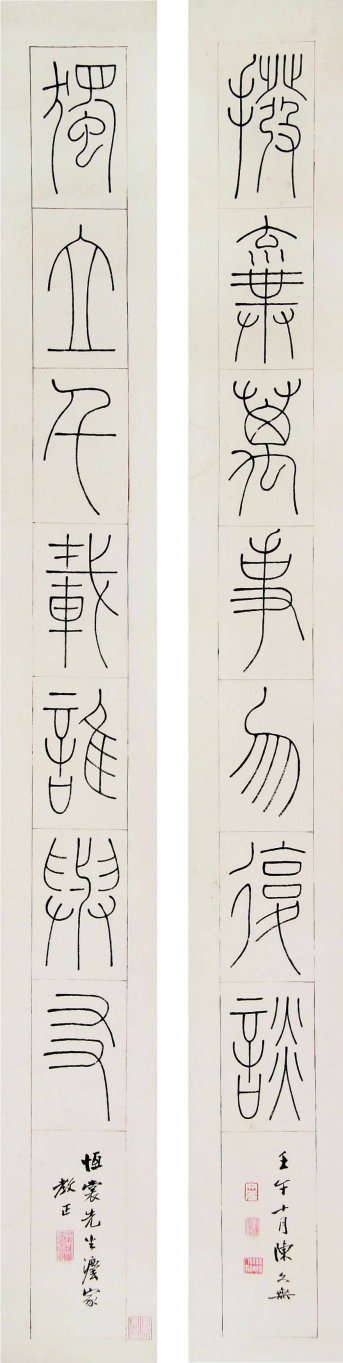 撥棄萬事勿復談
壬午十月陳無
獨立千載誰與友
恆裳先生灋家
教正